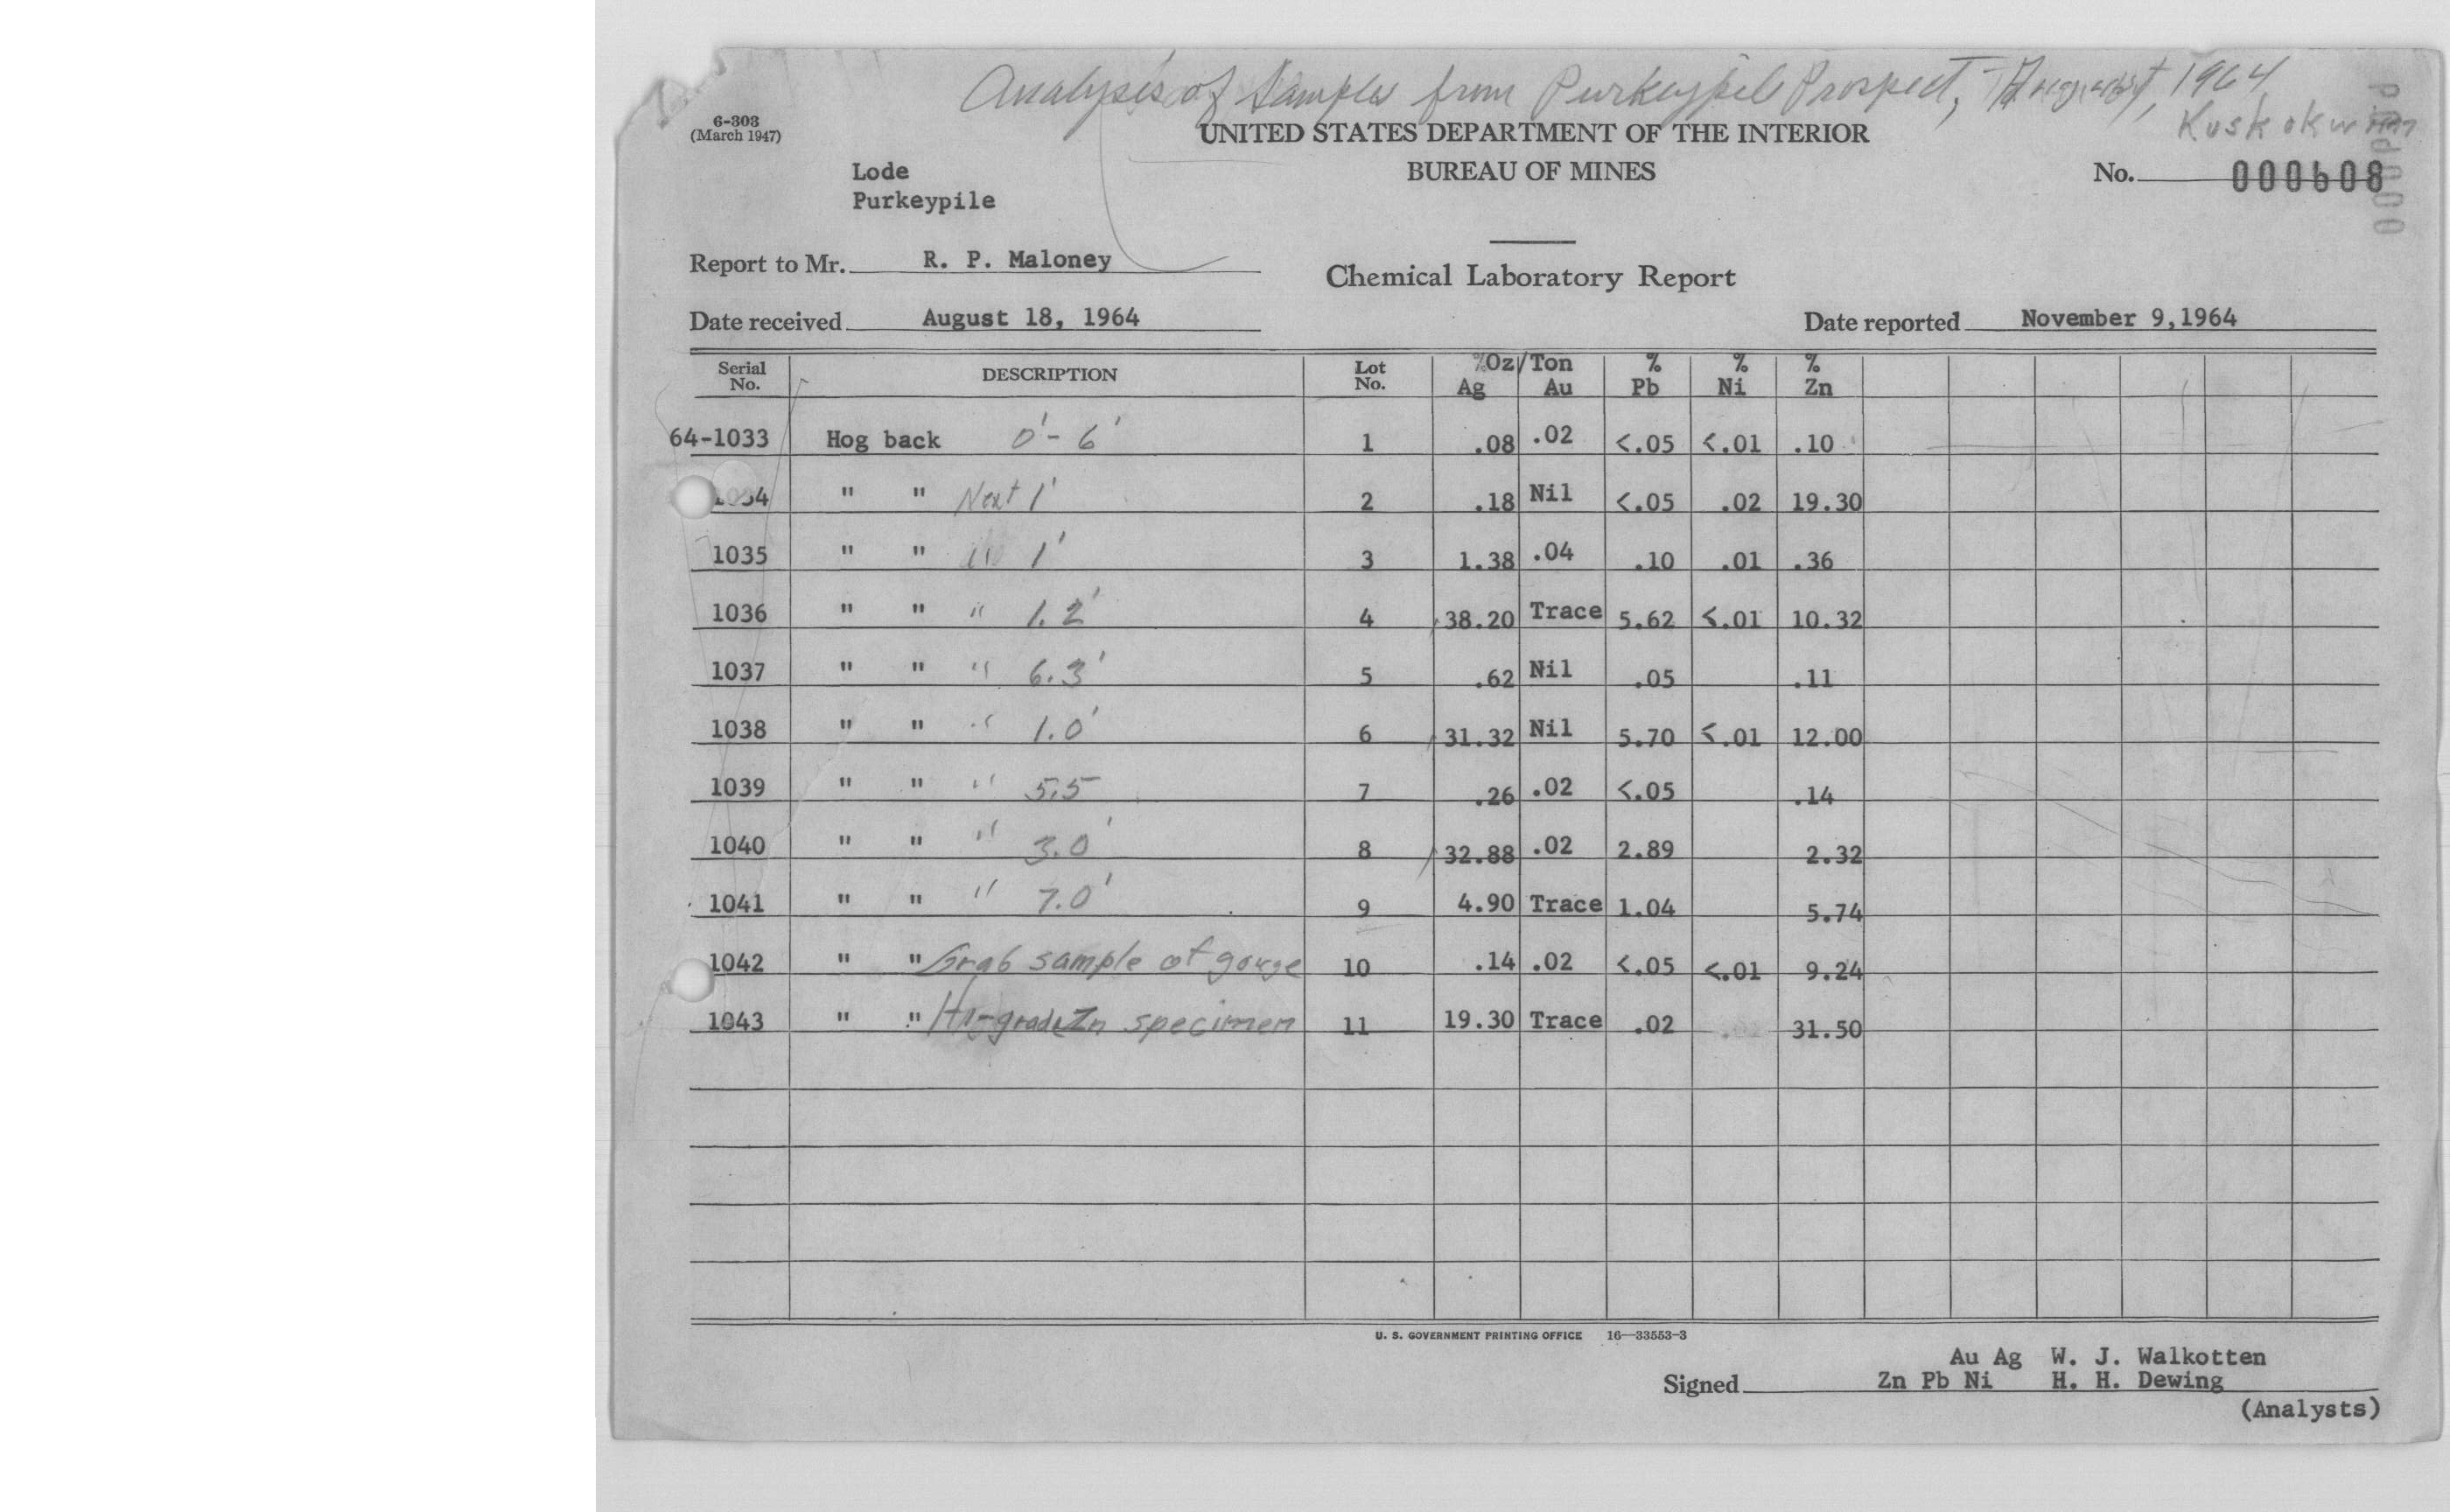 Analysis of Samples from Purkeypile Prospect, August, 1964
Kuskokwim
6-303
(March 1947)
UNITED STATES DEPARTMENT OF THE INTERIOR
BUREAU OF MINES
Lode
Purkeypile
No. 000608
Report to Mr. R. P. Maloney
Chemical Laboratory Report
Date received August 18, 1964
Date reported November 9,1964
Serial No. DESCRIPTION Lot No. %Oz/Ton Ag Au % Pb % Ni % Zn
64-1033 Hog back 0'- 6' 1 .08 .02 <.05 <.01 .10
1034 " " Next 1' 2 .18 Nil <.05 .02 19.30
1035 " " " 1' 3 1.38 .04 .10 .01 .36
1036 " " " 1.2' 4 38.20 Trace 5.62 <.01 10.32
1037 " " " 6.3' 5 .62 Nil .05 .11
1038 " " " 1.0' 6 31.32 Nil 5.70 <.01 12.00
1039 " " " 5.5 7 .26 .02 <.05 .14
1040 " " " 3.0' 8 32.88 .02 2.89 2.32
1041 " " " 7.0' 9 4.90 Trace 1.04 5.74
1042 " " Grab sample of gouge 10 .14 .02 <.05 <.01 9.24
1043 " " Hi-grade Zn specimen 11 19.30 Trace .02 31.50
U. S. GOVERNMENT PRINTING OFFICE 16—33553-3
Au Ag W. J. Walkotten
Signed Zn Pb Ni H. H. Dewing
(Analysts)